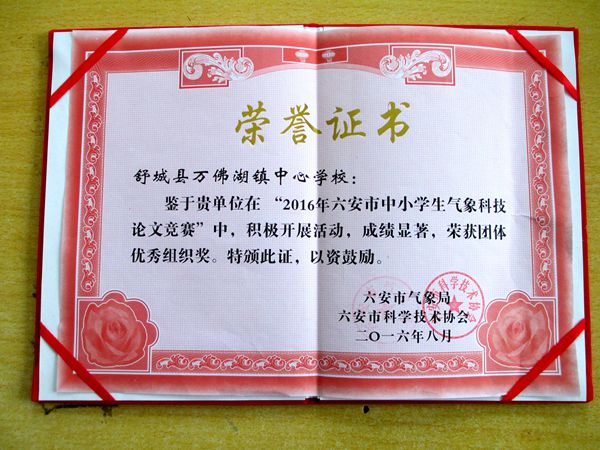 荣誉证书
舒城县万佛湖镇中心学校：
鉴于贵单位在“2016年六安市中小学生气象科技
论文竞赛”中，积极开展活动，成绩显著，荣获团体
优秀组织奖。特颁此证，以资鼓励。
六安市气象局
六安市科学技术协会
二〇一六年八月